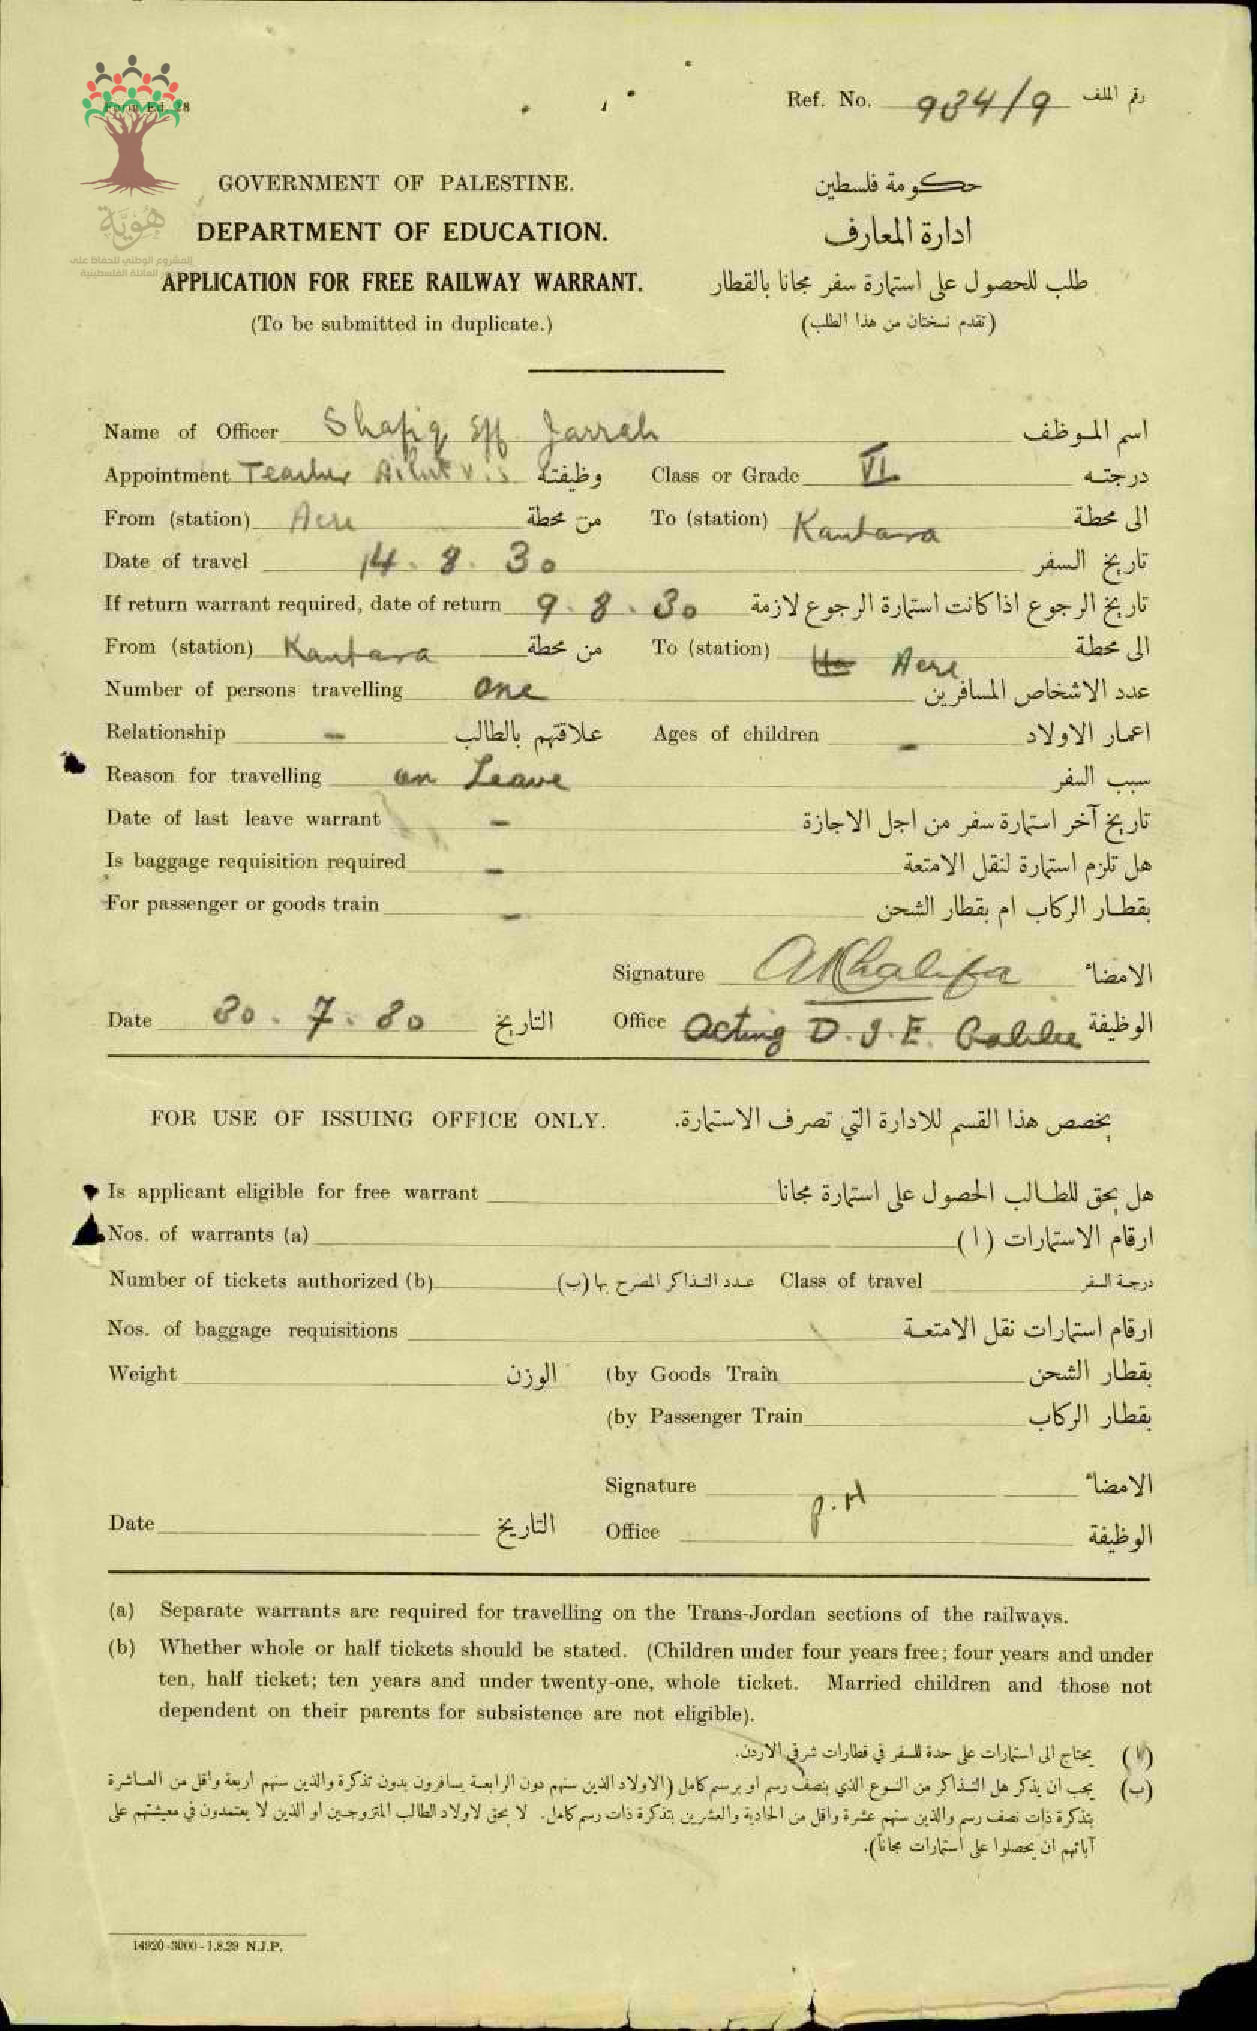 Form Ed. 28
Ref. No. 934/9 رقم الملف
هُوِيَّة
المشروع الوطني للحفاظ على
العائلة الفلسطينية
GOVERNMENT OF PALESTINE. حكومة فلسطين
DEPARTMENT OF EDUCATION. ادارة المعارف
APPLICATION FOR FREE RAILWAY WARRANT. طلب للحصول على استمارة سفر مجانا بالقطار
(To be submitted in duplicate.) (تقدم نسختان من هذا الطلب)
Name of Officer Shafiq Eff Jarrah اسم الموظف
Appointment Teacher V.S وظيفته Class or Grade VI درجته
From (station) Acre من محطة To (station) Kantara الى محطة
Date of travel 14.8.30 تاريخ السفر
If return warrant required, date of return 9.8.30 تاريخ الرجوع اذا كانت استمارة الرجوع لازمة
From (station) Kantara من محطة To (station) Acre الى محطة
Number of persons travelling one عدد الاشخاص المسافرين
Relationship - علاقتهم بالطالب Ages of children - اعمار الاولاد
Reason for travelling on Leave سبب السفر
Date of last leave warrant - تاريخ آخر استمارة سفر من اجل الاجازة
Is baggage requisition required - هل تلزم استمارة لنقل الامتعة
For passenger or goods train - بقطار الركاب ام بقطار الشحن
Signature AKhalifa الامضاء
Date 30.7.30 التاريخ Office Acting D.I.E. Galilee الوظيفة
FOR USE OF ISSUING OFFICE ONLY. يخصص هذا القسم للادارة التي تصرف الاستمارة.
Is applicant eligible for free warrant هل يحق للطالب الحصول على استمارة مجانا
Nos. of warrants (a) ارقام الاستمارات (ا)
Number of tickets authorized (b) عدد التذاكر المصرح بها (ب) Class of travel درجة السفر
Nos. of baggage requisitions ارقام استمارات نقل الامتعة
Weight الوزن (by Goods Train بقطار الشحن
(by Passenger Train بقطار الركاب
Signature الامضاء
P.H
Date التاريخ Office الوظيفة
(a) Separate warrants are required for travelling on the Trans-Jordan sections of the railways.
(b) Whether whole or half tickets should be stated. (Children under four years free; four years and under
ten, half ticket; ten years and under twenty-one, whole ticket. Married children and those not
dependent on their parents for subsistence are not eligible).
(ا) يحتاج الى استمارات على حدة للسفر في قطارات شرقي الاردن.
(ب) يجب ان يذكر هل التذاكر من النوع الذي بنصف رسم او برسم كامل (الاولاد الذين سنهم دون الرابعة يسافرون بدون تذكرة والذين سنهم اربعة واقل من العاشرة
بتذكرة ذات نصف رسم والذين سنهم عشرة واقل من الحادية والعشرين بتذكرة ذات رسم كامل. لا يحق لاولاد الطالب المتزوجين او الذين لا يعتمدون في معيشتهم على
آبائهم ان يحصلوا على استمارات مجاناً).
14920-3000-1.8.29 N.J.P.